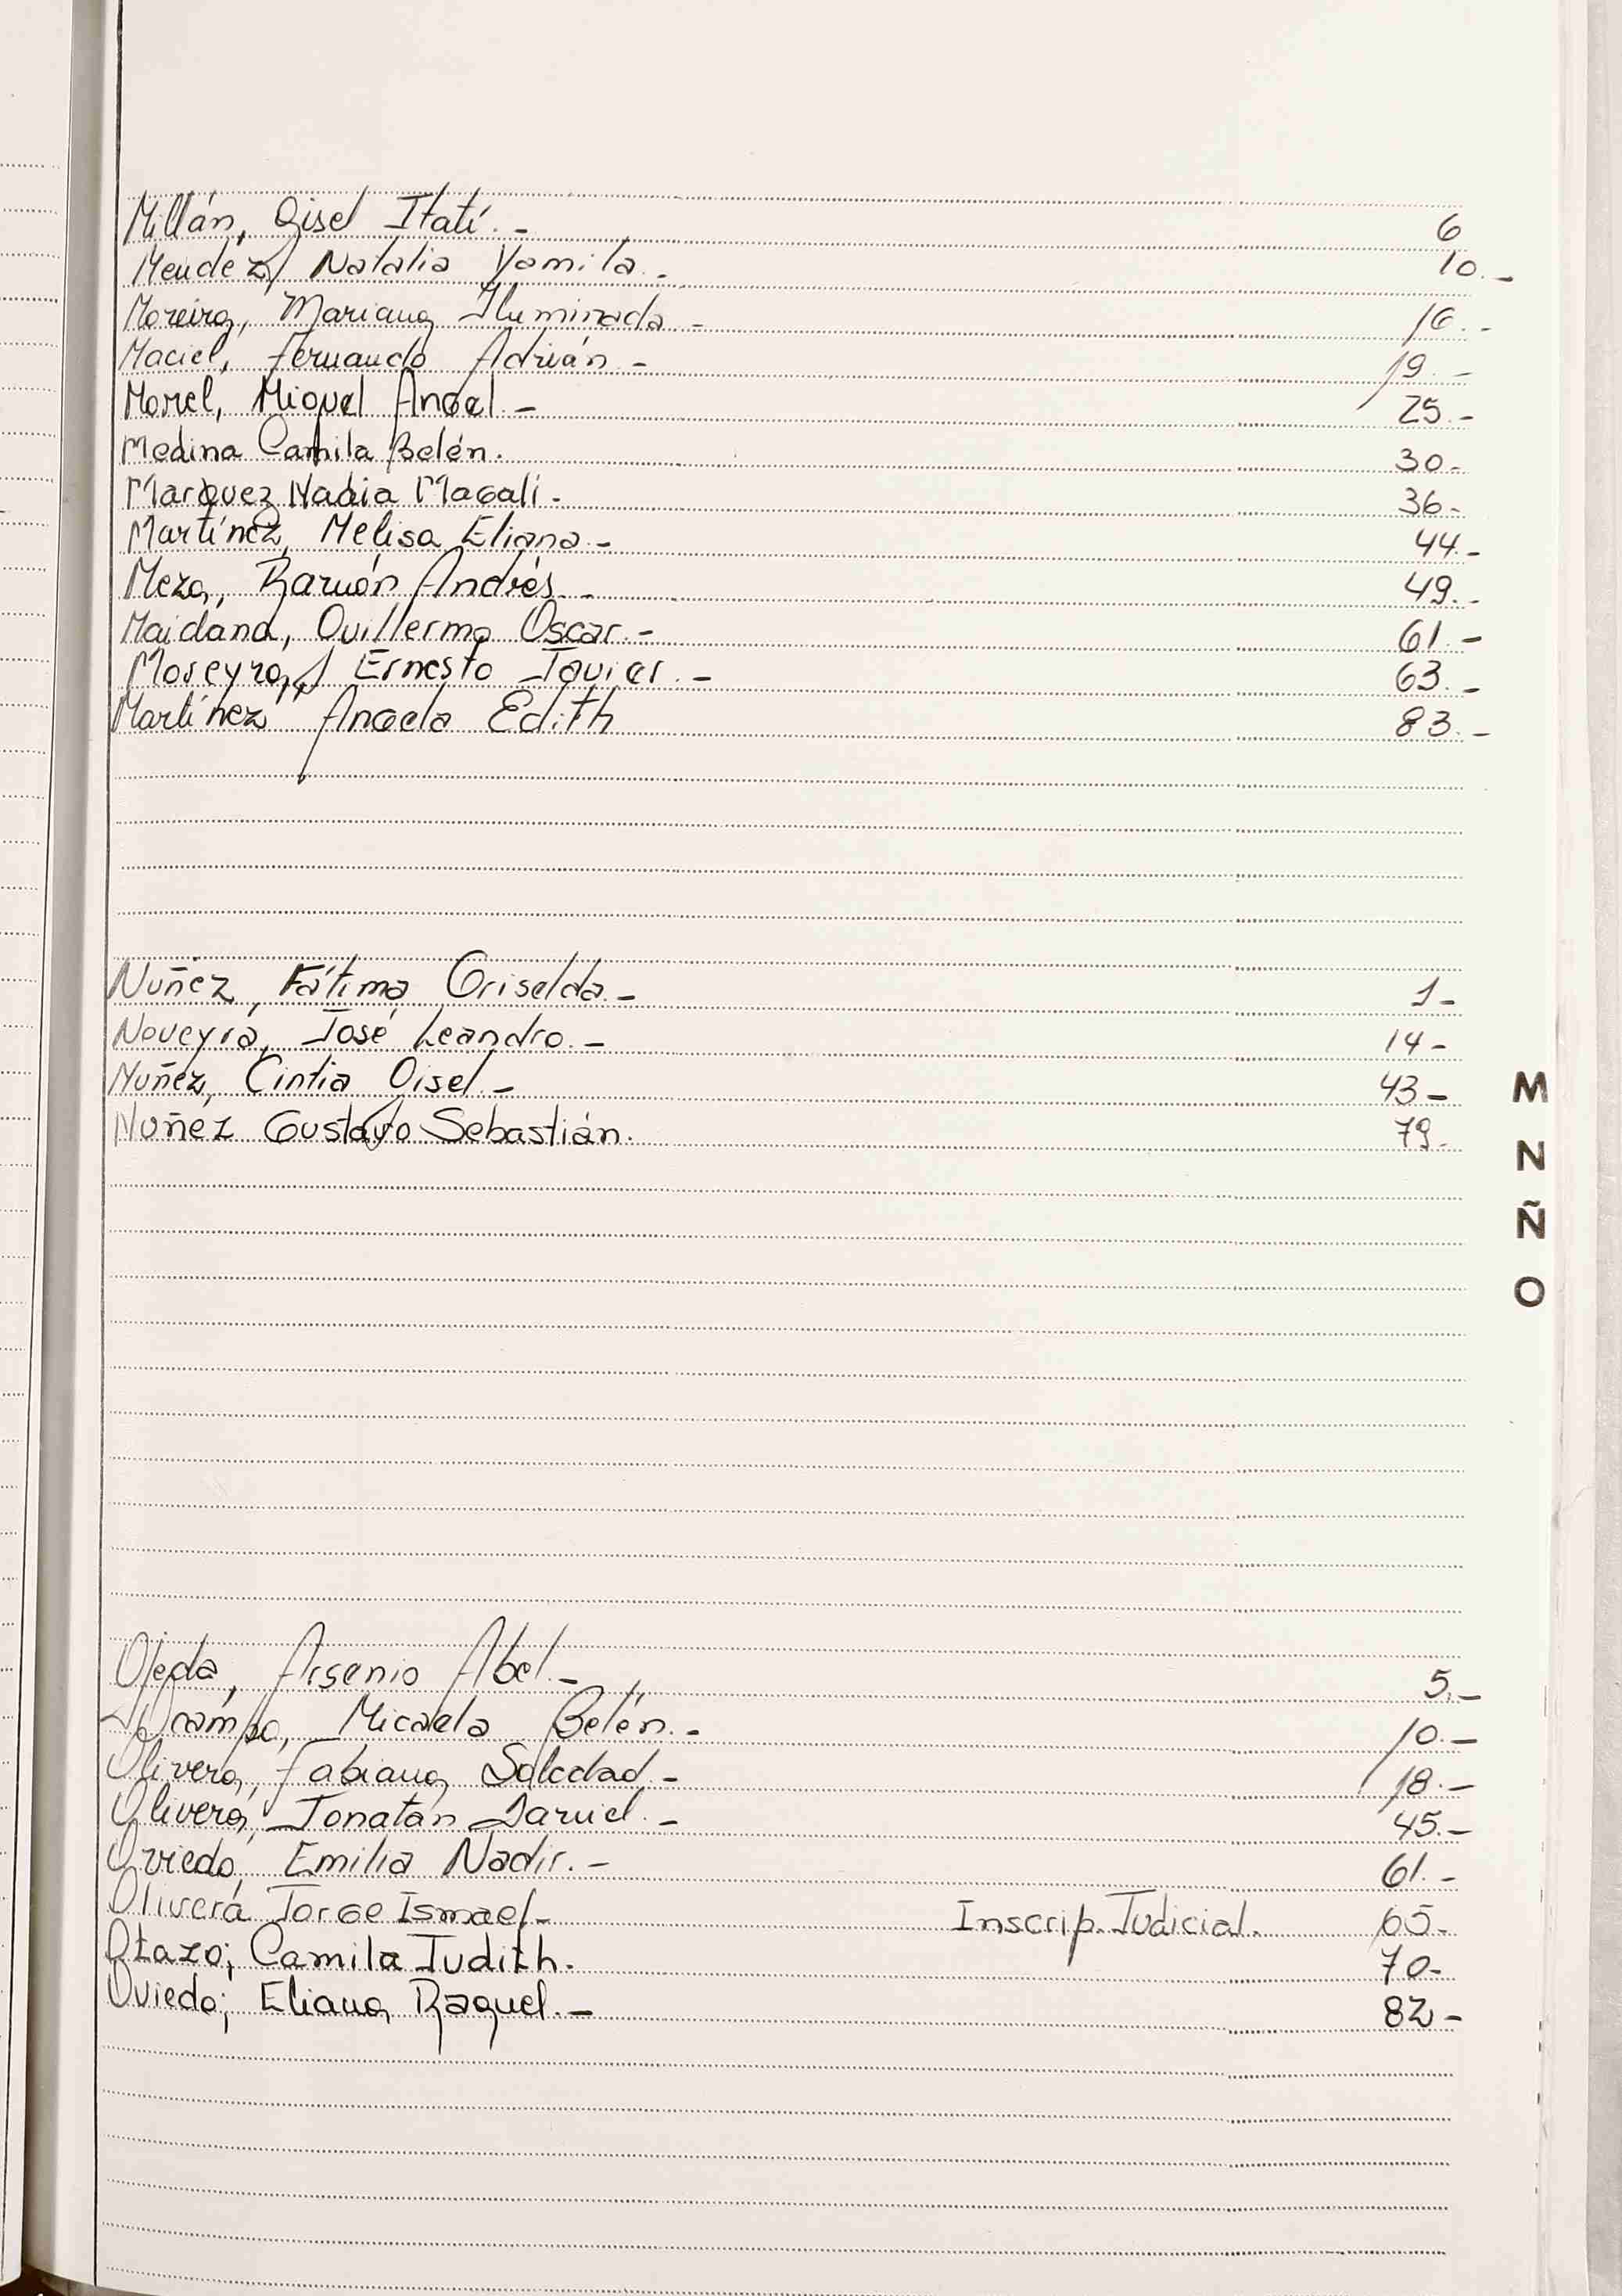 Millán, Gisel Itatí.- 6
Mendez, Natalia Yamila.- 10.-
Moreira, Mariana Iluminada.- 16.-
Maciel, Fernando Adrián.- 19.-
Morel, Miguel Angel.- 25.-
Medina Camila Belén. 30.-
Marquez Nadia Magali.- 36.-
Martínez, Melisa Eliana.- 44.-
Meza, Ramón Andrés.- 49.-
Maidana, Guillermo Oscar.- 61.-
Moreyra, Ernesto Javier.- 63.-
Martínez Angela Edith 83.-
Nuñez, Fátima Griselda.- 1-
Noveyra, José Leandro.- 14-
Nuñez, Cintia Gisel.- 43-
Nuñez Gustavo Sebastián. 79-
M
N
Ñ
O
Ojeda, Arsenio Abel.- 5.-
Ocampo, Micaela Belén.- 10.-
Olivera, Fabiana Soledad.- 18.-
Olivera, Jonatan Daniel.- 45.-
Oviedo, Emilia Nadir.- 61.-
Olivera Jorge Ismael- Inscrip. Judicial. 65-
Otazo; Camila Judith. 70-
Oviedo; Eliana Raquel.- 82-